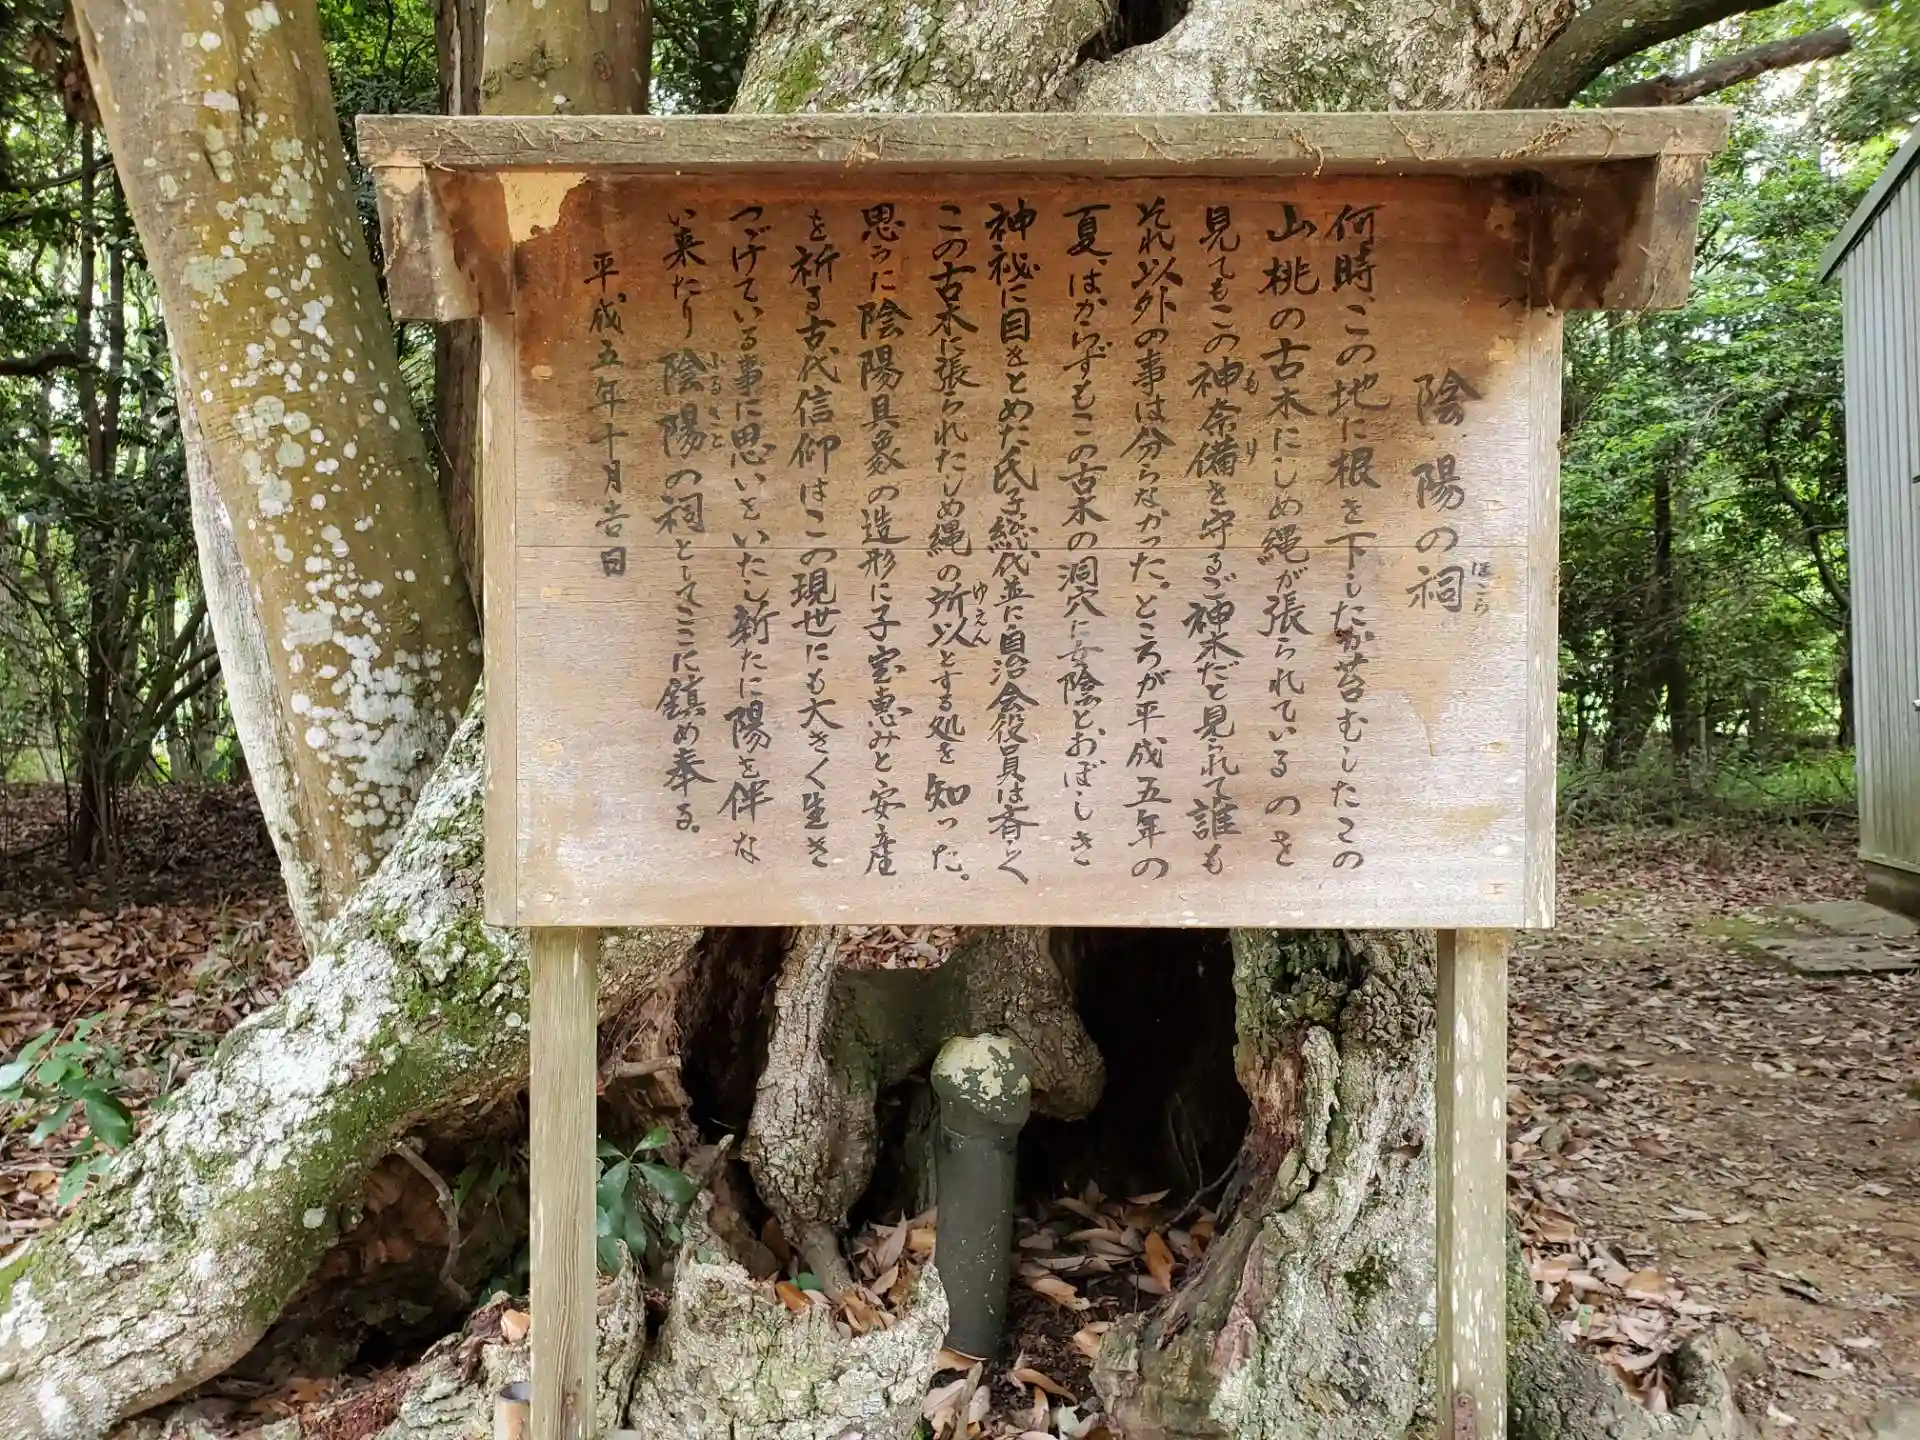 陰陽の祠
ほこら
何時、この地に根を下したか苔むしたこの
山桃の古木にしめ縄が張られているのを
見てもこの神奈備を守るご神木だと見られて誰も
もり
それ以外の事は分らなかった。ところが平成五年の
夏、はからずもこの古木の洞穴に女陰とおぼしき
神祕に目をとめた氏子総代並に自治会役員は斉らく
この古木に張られたしめ縄の所以とする処を知った。
ゆえん
思うに陰陽具象の造形に子宝恵みと安産
を祈る古代信仰はこの現世にも大きく生き
つづけている事に思いをいたし新たに陽を伴な
い来たり陰陽の祠としてここに鎮め奉る。
ふるさと
平成五年十月吉日